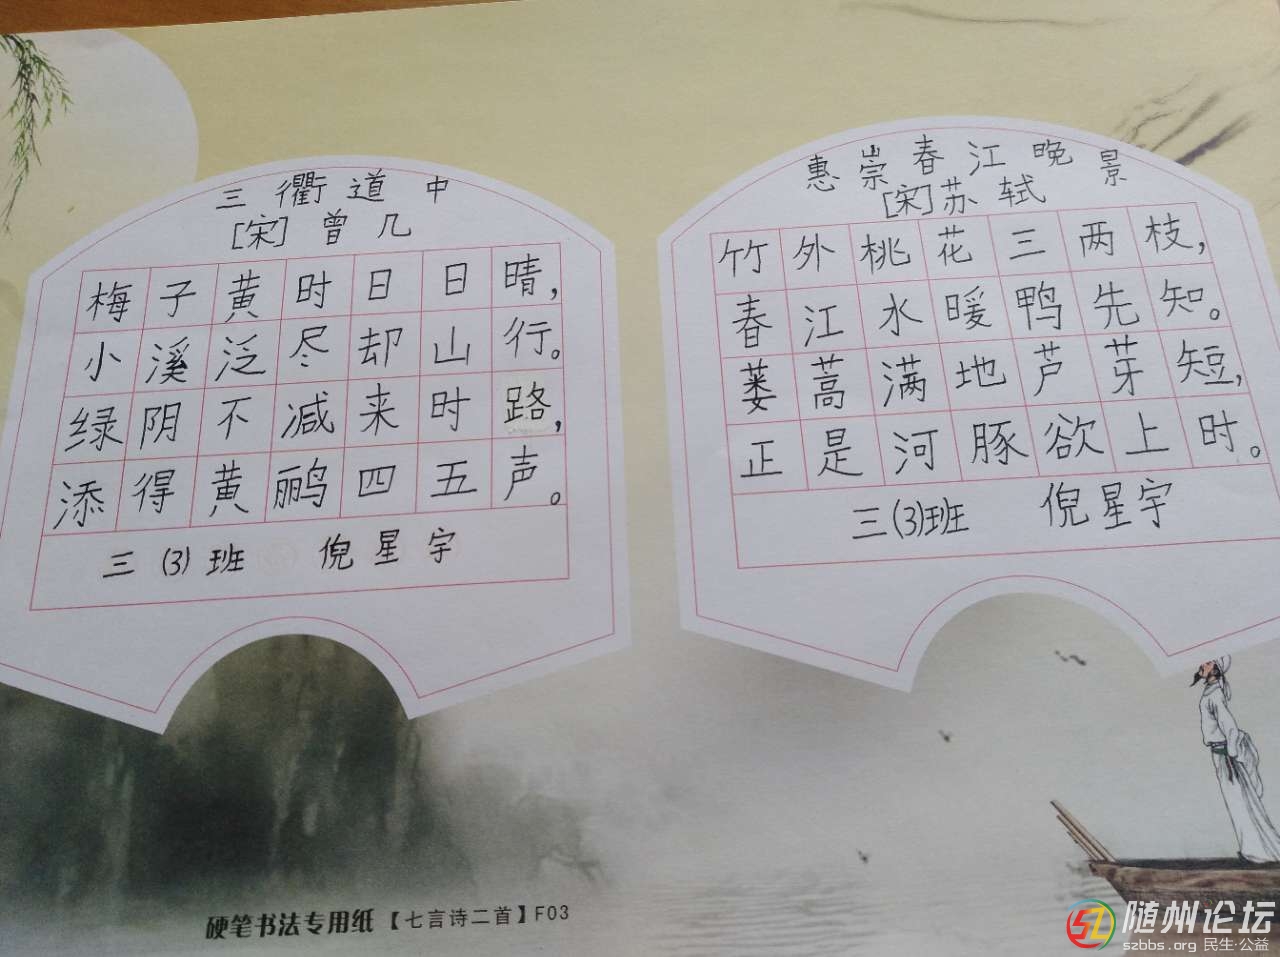 三衢道中
[宋]曾几
梅子黄时日日晴,
小溪泛尽却山行。
绿阴不减来时路,
添得黄鹂四五声。
三(3)班 倪星宇
惠崇春江晚景
[宋]苏轼
竹外桃花三两枝,
春江水暖鸭先知。
蒌蒿满地芦芽短,
正是河豚欲上时。
三(3)班 倪星宇
硬笔书法专用纸【七言诗二首】F03
随州论坛
szbbs.org 民生·公益